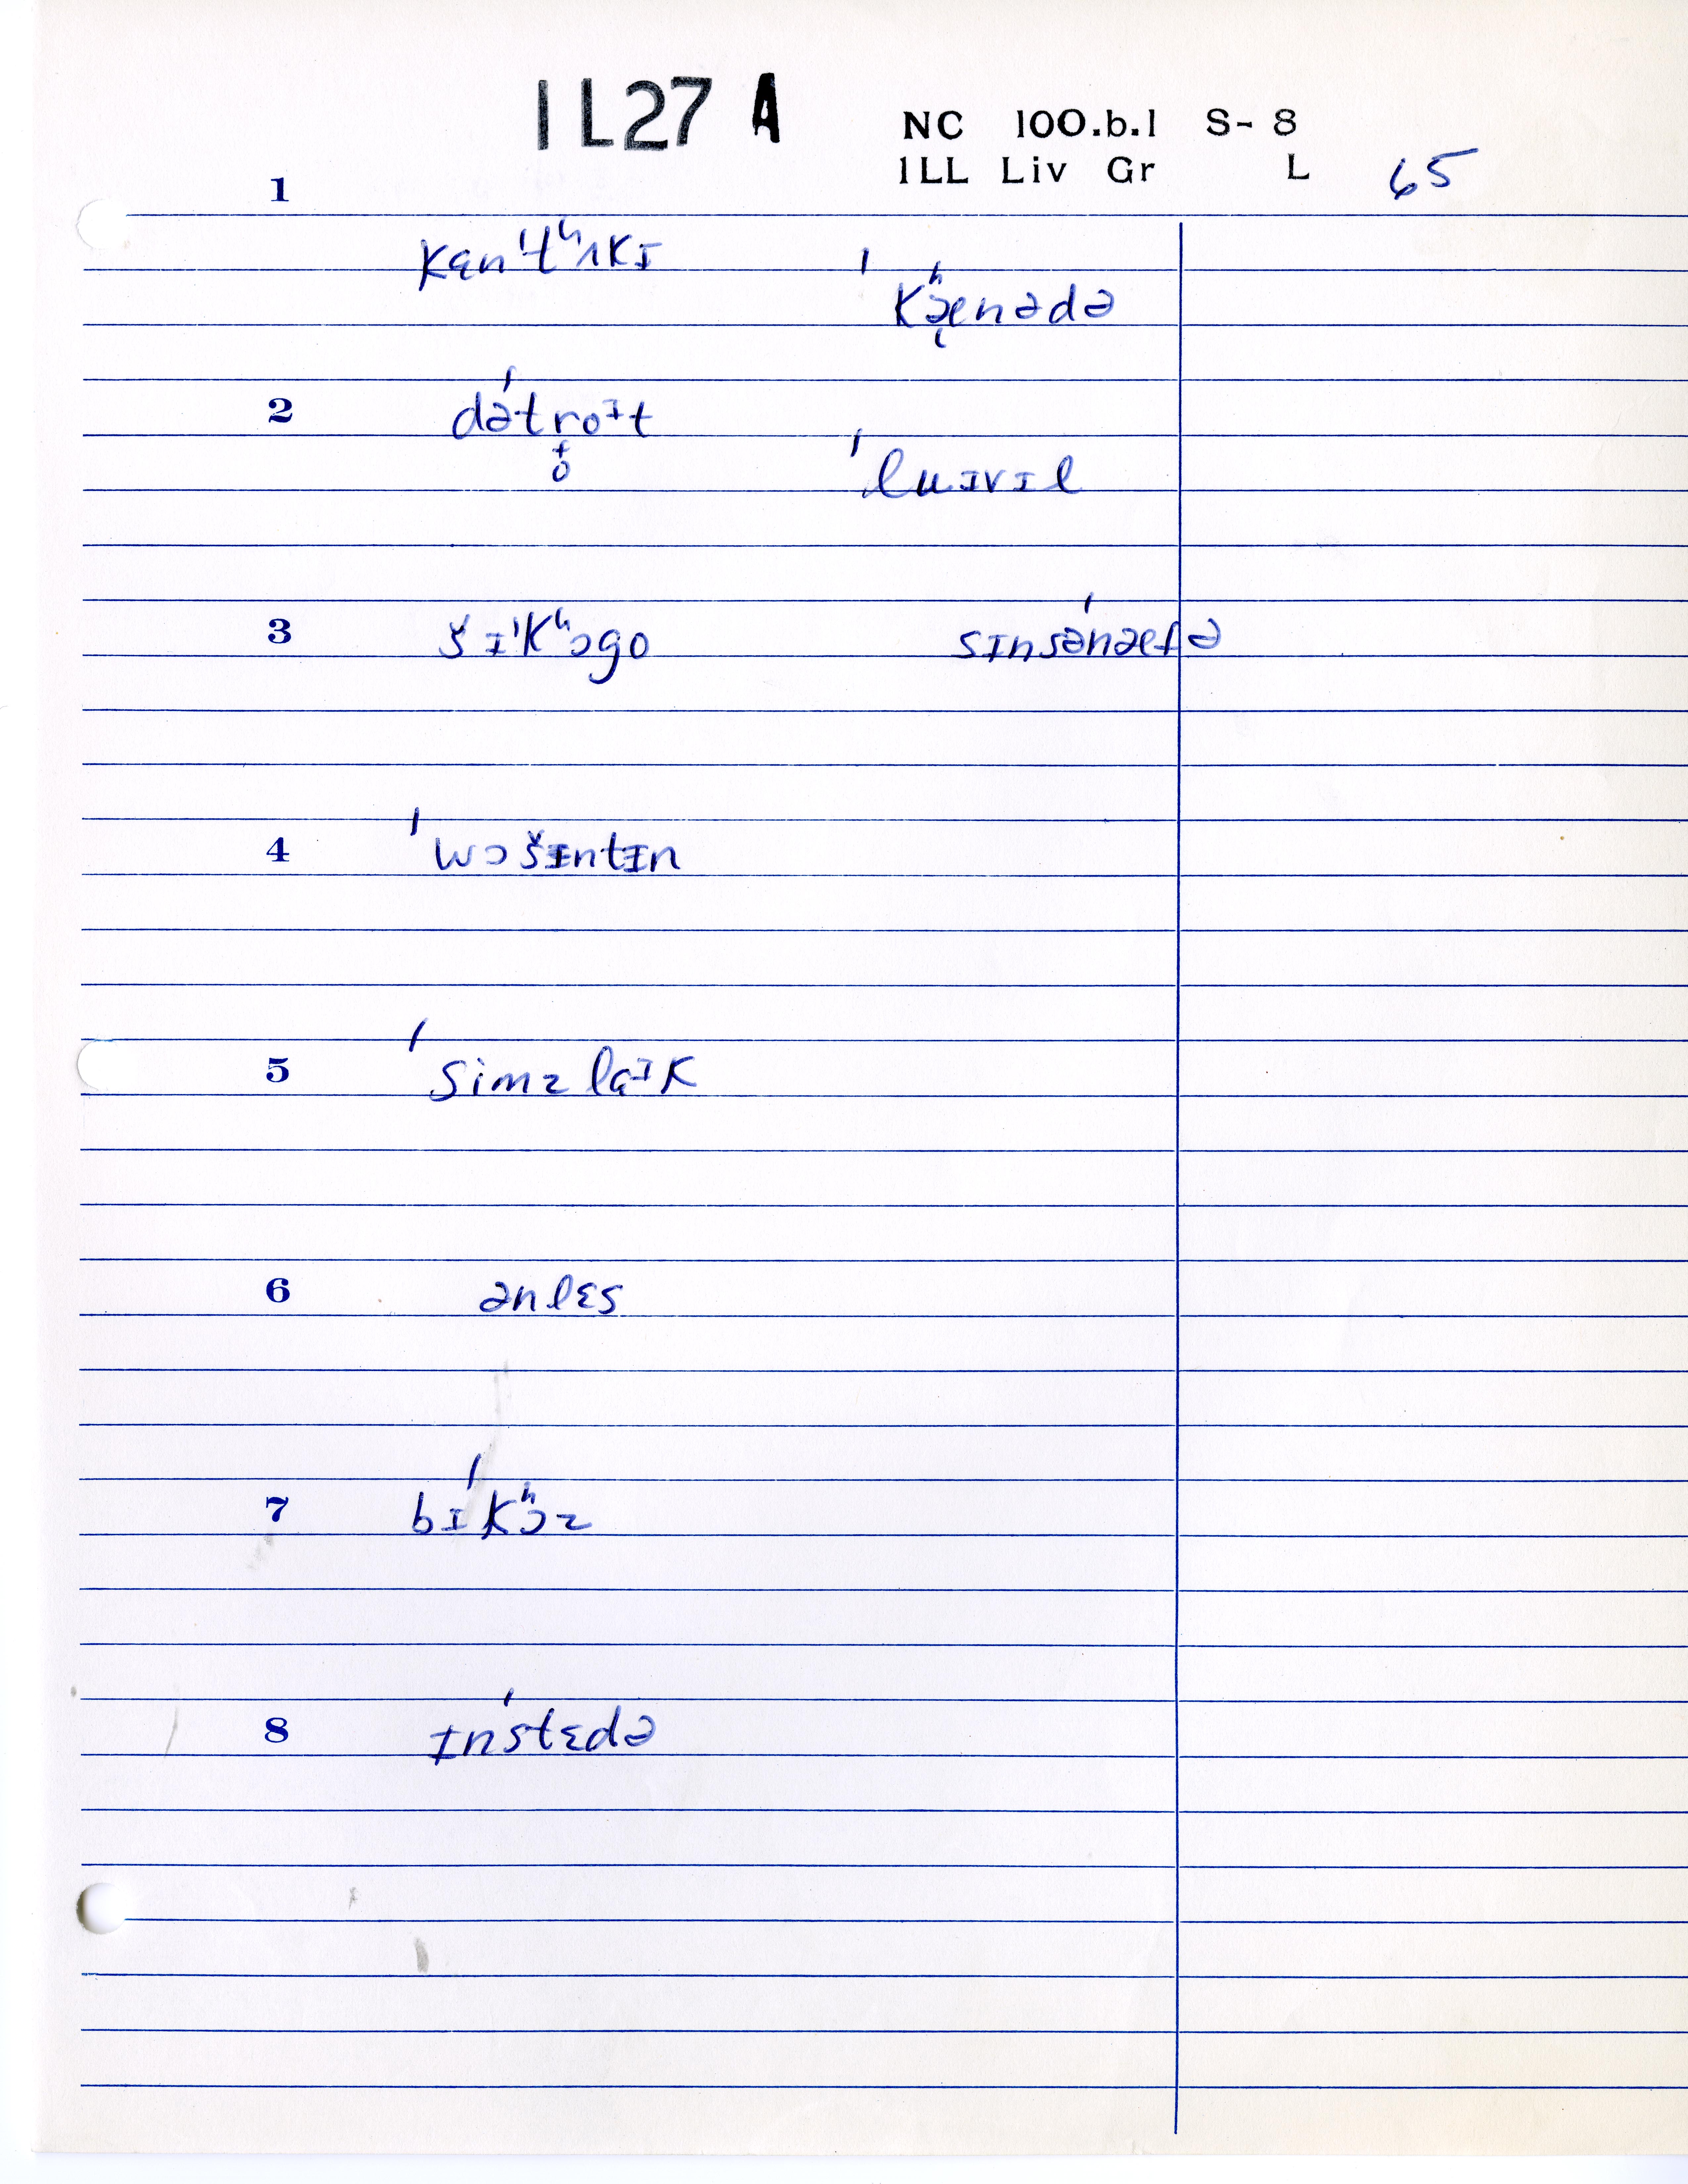 1L27 A
NC 100.b.1 S- 8
1LL Liv Gr L 65
1 kɛnˈtʰʌkɪ ˈkʰæ̨nədə
2 dəˈtro̥ᶦt ˈluɪvɪl
3 šɪˈkʰɔgo sɪnsəˈnæɾə
4 ˈwɔšɪntɪn
5 ˈsimz laᶦk
6 ənlɛs
7 bɪˈkʰɔz
8 ɪnˈstɛdə